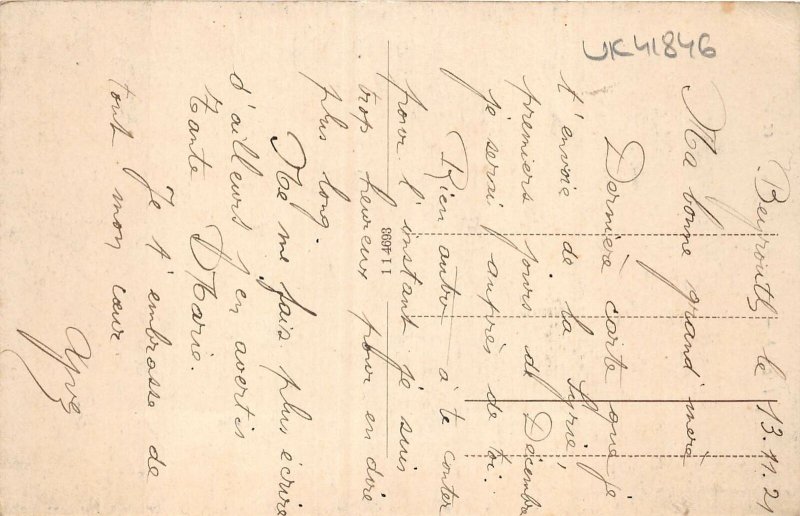 UK41846
Beyrouth le 13.11.21
Ma bonne grand'mère
Dernière carte que je
t'envoie de la Syrie,
premiers jours de Décembre
je serai auprès de toi.
Rien autre à te conter
pour l'instant je suis
trop heureux pour en dire
plus long.
Ne me fais plus écrire
d'ailleurs j'en avertis
Tante Marie.
Je t'embrasse de
tout mon cœur
Yves
114693